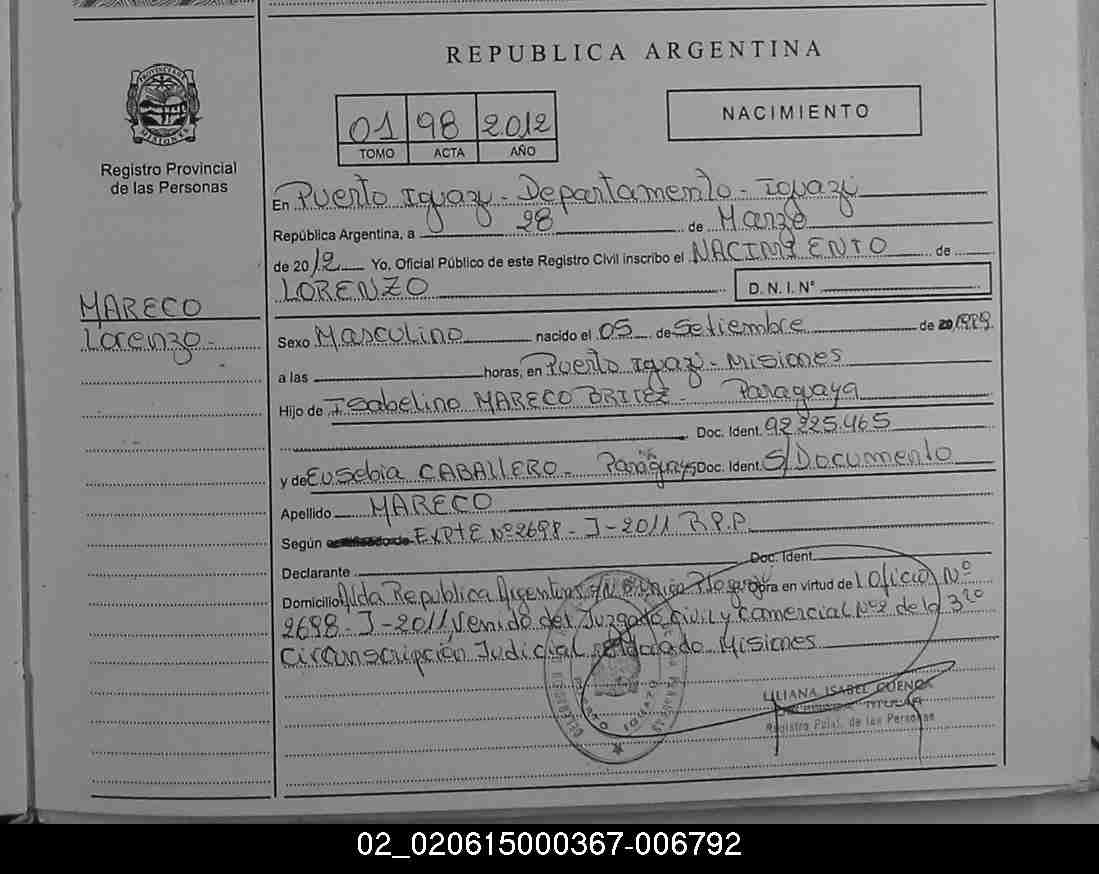 REPUBLICA ARGENTINA
PROVINCIA DE MISIONES
Registro Provincial
de las Personas
01 98 2012
TOMO ACTA AÑO
NACIMIENTO
En Puerto Iguazú - Departamento - Iguazú
República Argentina, a 28 de Marzo
de 2012 Yo, Oficial Público de este Registro Civil inscribo el NACIMIENTO de
LORENZO D. N. I. N°
MARECO
Lorenzo -
Sexo Masculino nacido el 05 de Setiembre de 20
a las horas, en Puerto Iguazú - Misiones
Hijo de Isabelino MARECO BRITEZ - Paraguaya
Doc. Ident. 92 225.465
y de Eusebia CABALLERO - Doc. Ident. S/Documento
Apellido MARECO
Según EXPTE Nº 2698 - J - 2011 R.P.P.
Declarante Doc. Ident.
Domicilio Avda Republica Argentina Obra en virtud de Oficio Nº
2698 - J - 2011, Venido del Juzgado Civil y Comercial Nº2 de la 3
Circunscripción Judicial Misiones
LILIANA ISABEL CUENCA
TITULAR
Registro Pcial. de las Personas
02_020615000367-006792